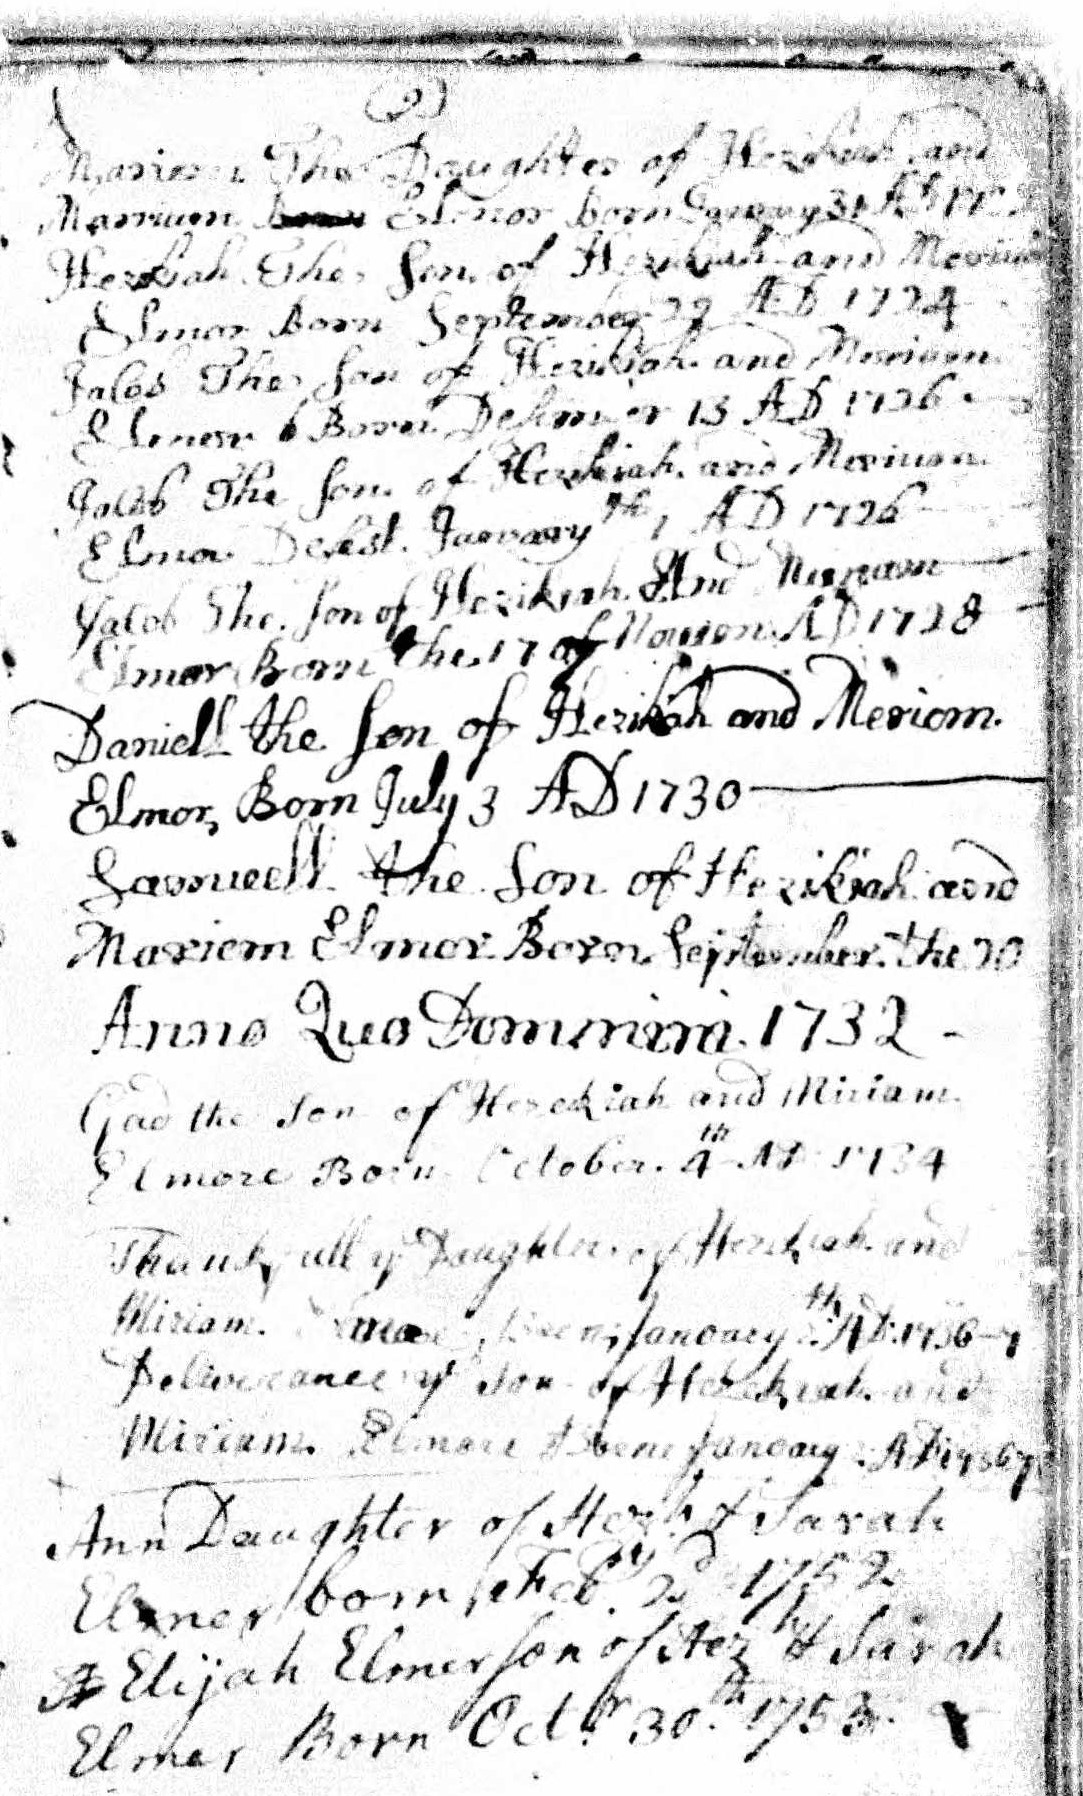 The Daughter of Hezekiah and
Elmor Born January 31 AD
Hezekiah The Son of Hezekiah and
Elmor Born September 29 AD 1724
Jacob The Son of Hezikiah and Meriam
Elmor Born 13 AD 1726
Jacob The Son of Hezikiah and Merium
Elmor January th 1 AD 1726
Jacob The Son of Hezikiah And
Elmor Born the 17 of AD 1728
Daniell the Son of Hezikiah and Meriom
Elmor Born July 3 AD 1730
Samuell the Son of Hezikiah and
Mariem Elmor Born September the 20
Anno Quo Dommini 1732
Gad the Son of Hezekiah and Miriam
Elmore Born October 4th AD 1734
Thankfull ye Daughter of Hezekiah and
Miriam January AD 1736-7
Deliverance ye Son of Hezekiah and
Miriam Elmore Borne January AD 1736/7
Ann Daughter of Hezh & Sarah
Elmer born Febry 2d 1752
Elijah Elmer Son of Hezh & Sarah
Elmer Born Octr 30th 1753